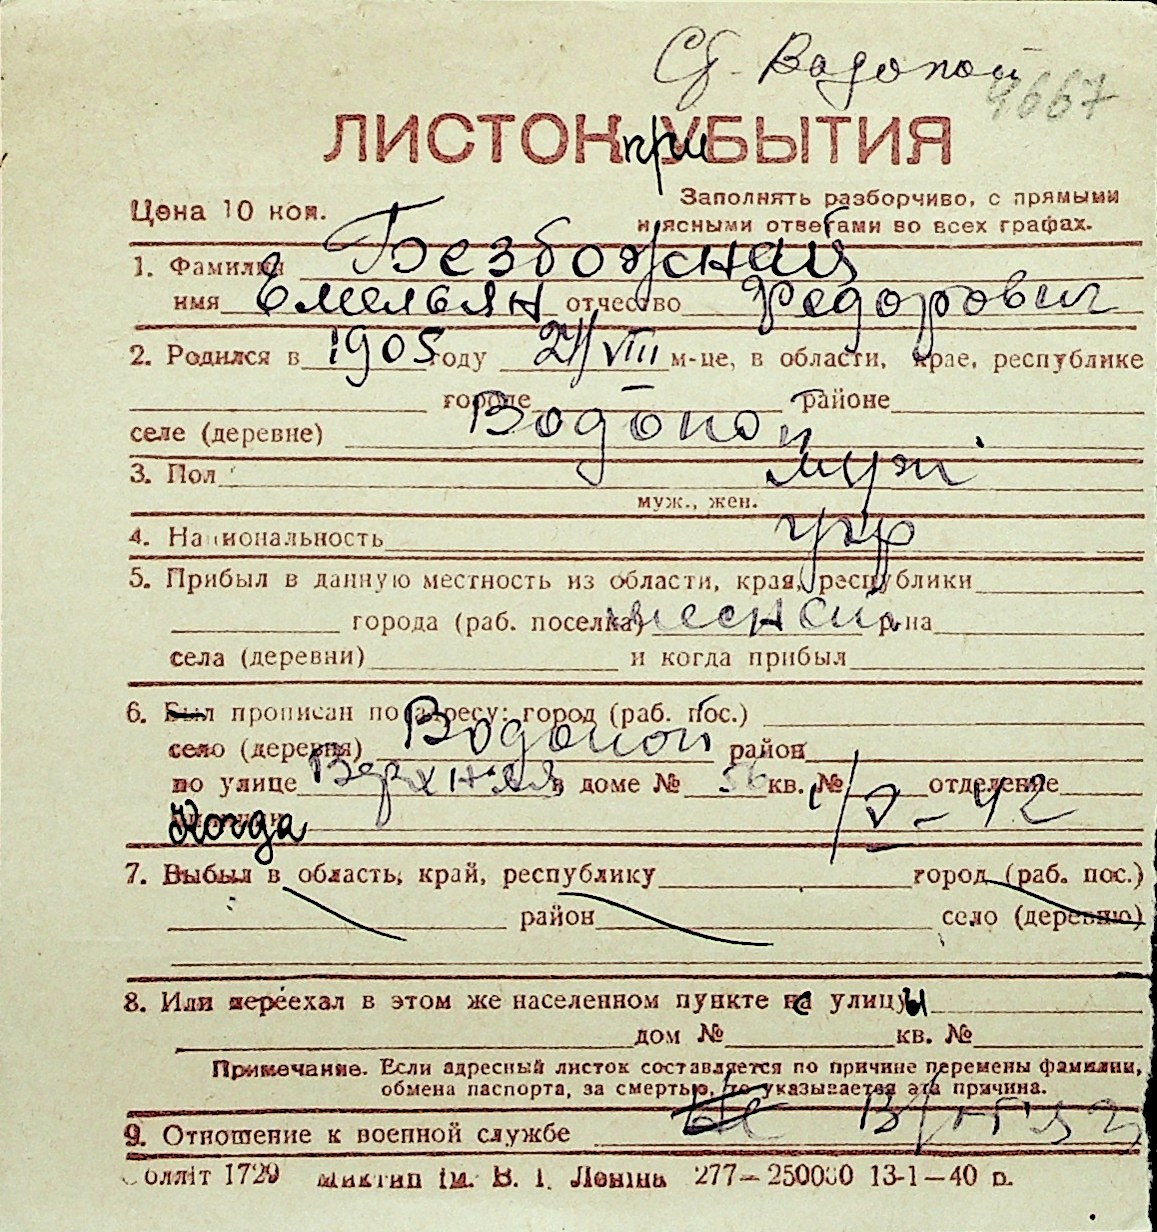 Водопой
4667
ЛИСТОК при УБЫТИЯ
Цена 10 коп.
Заполнять разборчиво, с прямыми
и ясными ответами во всех графах.
1. Фамилия Безбожный
имя Емельян отчество Федорович
2. Родился в 1905 году 24/VIII м-це, в области, крае, республике
городе районе
селе (деревне) Водопой
3. Пол муж
муж., жен.
4. Национальность укр
5. Прибыл в данную местность из области, края, республики
города (раб. поселка) местный р-на
села (деревни) и когда прибыл
6. Был прописан по адресу: город (раб. пос.)
село (деревня) Водопой район
по улице Верхняя в доме № 56 кв. № отделение
Когда 1/V-42
7. Выбыл в область, край, республику город (раб. пос.)
район село (деревню)
8. Или переехал в этом же населенном пункте с улицы
дом № кв. №
Примечание. Если адресный листок составляется по причине перемены фамилии,
обмена паспорта, за смертью, то указывается эта причина.
9. Отношение к военной службе
оллiт 1729 iм. В. I. Ленiна 277—250000 13-1—40 р.